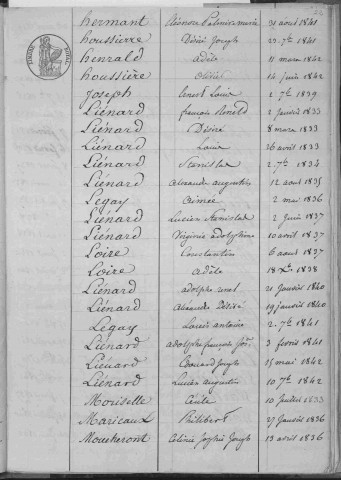 hermant Eléonore Palmire marie 31 aout 1841
houssierre Désiré Joseph 27 7bre 1841
henzald adèle 11 mars 1842
houssière olivier 14 juin 1842
Joseph benoit Louis 2 7bre 1839
Liénard françois 2 janvier 1833
Liénard Désiré 8 mars 1833
Liénard Louis 26 avril 1833
Liénard Stanislas 2 7bre 1834
Liénard alexandre augustin 12 aout 1835
Legay aimée 2 mai 1836
Liénard Lucien Stanislas 2 juin 1837
Liénard Virginie adolphine 10 avril 1837
Loire Constantin 6 aout 1837
Loire adèle 18 Xbre 1838
Liénard adolphe 21 janvier 1840
Liénard alexandre Désiré 19 janvier 1840
Legay Louis antoine 2 7bre 1841
Liénard adolphe françois Jos. 3 fevrier 1841
Liénard Edouard Joseph 15 mai 1842
Liénard Lucien augustin 10 7bre 1842
Moriselle Cécile 10 juillet 1833
Maricaux Philibert 27 janvier 1836
Moucheront Celinie Josephe 13 avril 1836